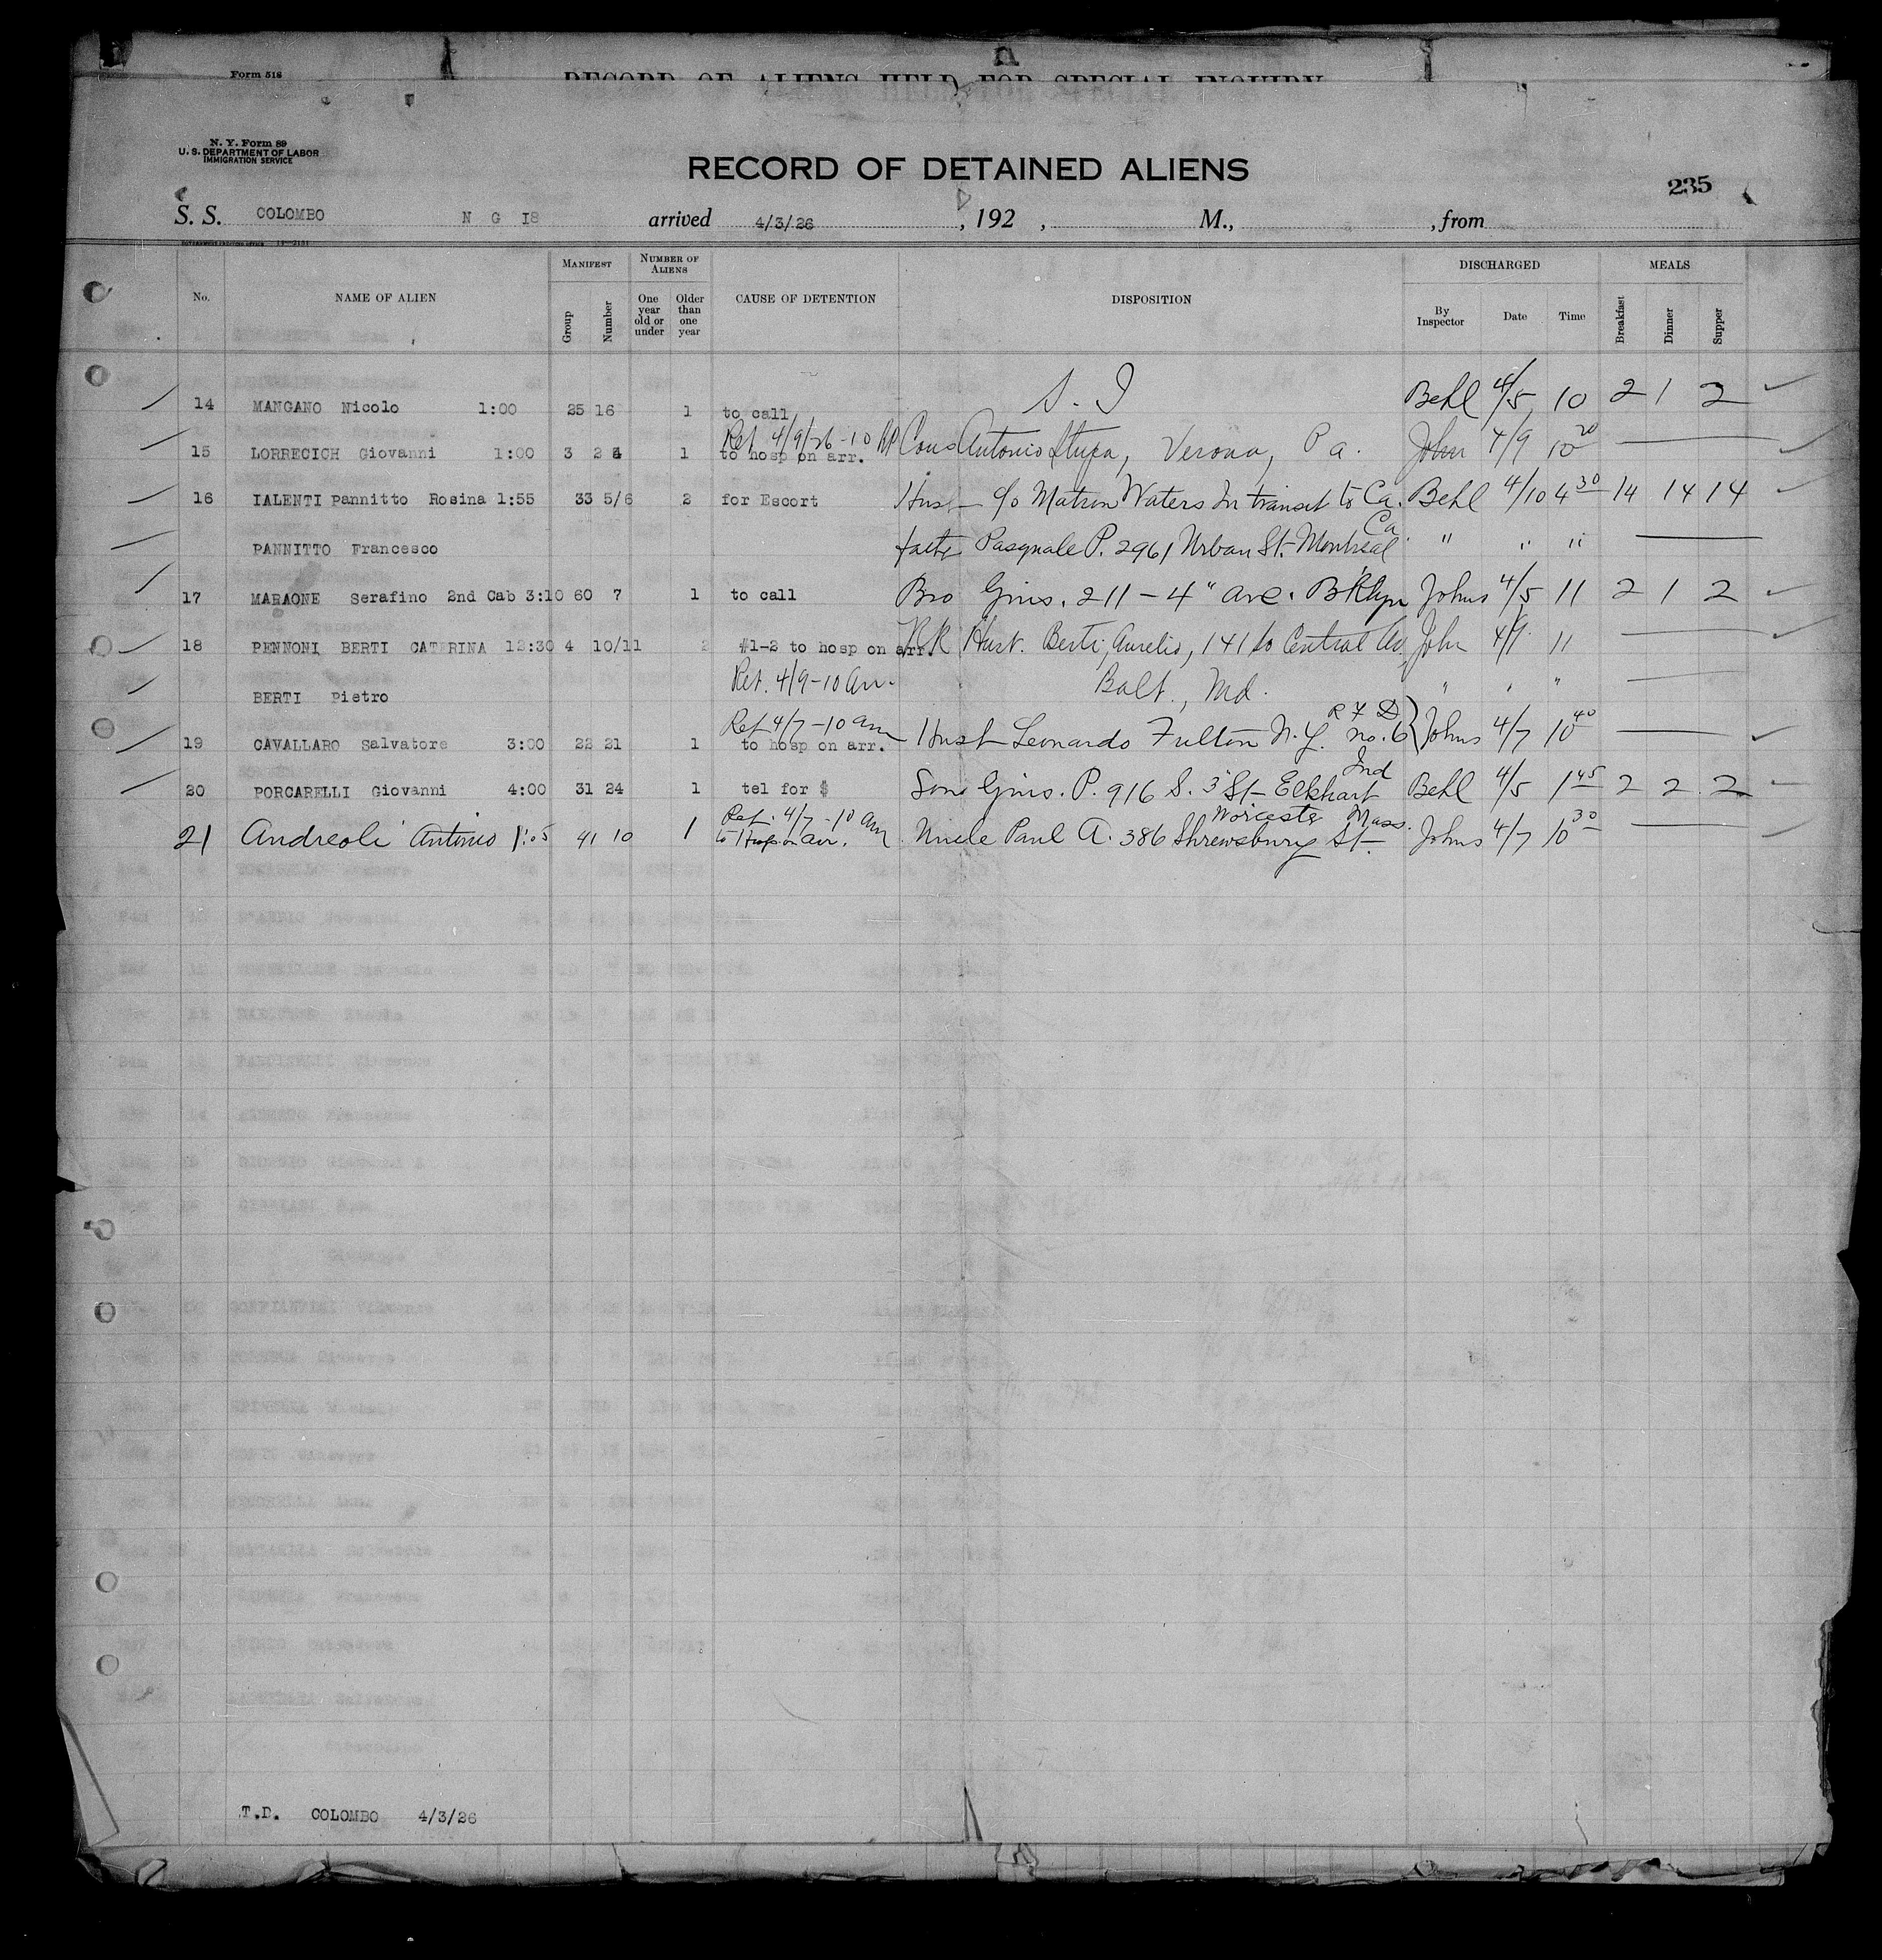 Form 518
RECORD OF ALIENS HELD FOR SPECIAL INQUIRY
N. Y. Form 89
U. S. DEPARTMENT OF LABOR
IMMIGRATION SERVICE
RECORD OF DETAINED ALIENS
235
S. S. COLOMBO N G I8 arrived 4/3/26, 192 , M., , from
MANIFEST NUMBER OF ALIENS DISCHARGED MEALS
No. NAME OF ALIEN Group Number One year old or under Older than one year CAUSE OF DETENTION DISPOSITION By Inspector Date Time Breakfast Dinner Supper
14 MANGANO Nicolo 1:00 25 16 1 to call S. I Behl 4/5 10 2 1 2
Ret 4/9/26-10
15 LORRECICH Giovanni 1:00 3 2 4 1 to hosp on arr. Cous Antonio Stupa, Verona, Pa. John 4/9 10 20
16 IALENTI Pannitto Rosina 1:55 33 5/6 2 for Escort Hus c/o Matron Waters In transit to Ca. Behl 4/10 4 30 14 14 14
PANNITTO Francesco Pasquale P. 2961 Urban St- Montreal Ca " " "
17 MARAONE Serafino 2nd Cab 3:10 60 7 1 to call Bro Gius. 211 - 4" ave. Bklyn Johns 4/5 11 2 1 2
18 PENNONI BERTI CATERINA 12:30 4 10/11 2 #1-2 to hosp on arr. RR Husb. Berti, Aurelio, 141 So Central Av, John 4/9 11
BERTI Pietro Ret. 4/9-10 am. Balt., Md. " " "
Ret 4/7-10 am R F D
19 CAVALLARO Salvatore 3:00 22 21 1 to hosp on arr. Leonardo Fulton N.Y. no. 6 Johns 4/7 10 40
20 PORCARELLI Giovanni 4:00 31 24 1 tel for $ Son Gius. P. 916 S. 3" St- Elkhart Ind Behl 4/5 1 45 2 2 2
Ret. 4/7-10 am Worcester Mass.
21 Andreoli Antonio 1:05 41 10 1 to Hosp on arr. Uncle Paul A. 386 Shrewsbury St- Johns 4/7 10 30
T.D. COLOMBO 4/3/26